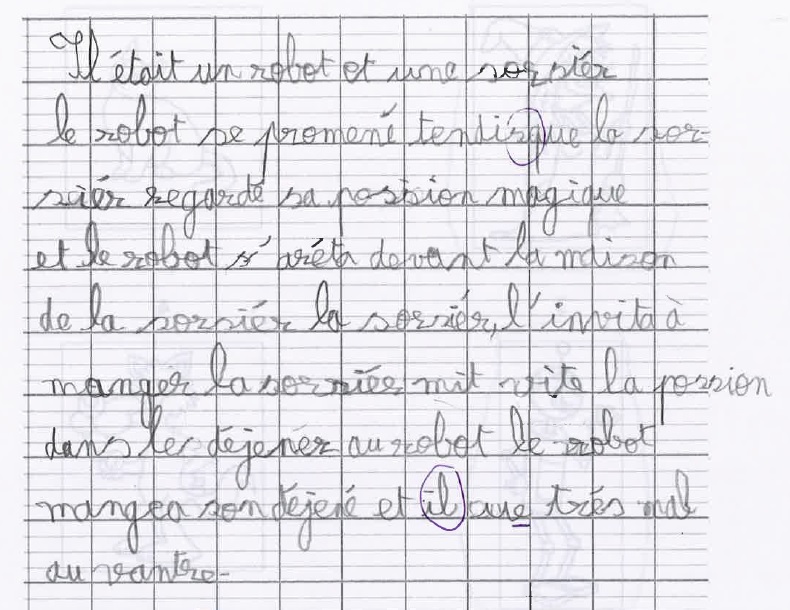 Il était un robot et une sorsiér
le robot se promené tendisque la sor-
siér regardé sa possion magique
et le robot s'aréta devant la maison
de la sorsiér la sorsiér, l'invita à
manger la sorsiée mit vite la possion
dans le déjener au robot le robot
mangea son déjené et il aue trés mal
au vantre-